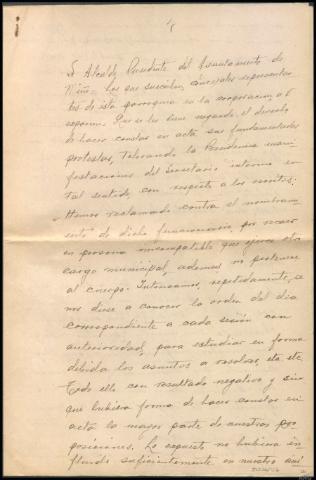 Sr. Alcalde Presidente del Ayuntamiento de
Miño.- Los que suscriben, concejales representan
tes de esta parroquia en la corporación, a V.
exponen: Que se les viene negando el derecho
de hacer constar en acta sus fundamentadas
protestas, tolerando la Presidencia mani
festaciones del Secretario interino en
tal sentido, con respecto a los escritos.
Hemos reclamado contra el nombram
iento de dicho funcionario, por recaer
en persona incompatible que ejerce otro
cargo municipal, además no pertenece
al cuerpo. Interesamos, repetidamente, se
nos diese a conocer la orden del día
correspondiente a cada sesión con
anterioridad, para estudiar en forma
debida los asuntos a resolver, etc etc.
Todo ello con resultado negativo y sin
que hubiera forma de hacer constar en
acta la mayor parte de nuestras pro
posiciones. Lo expuesto no hubiera in
fluido suficientemente en nuestro áni